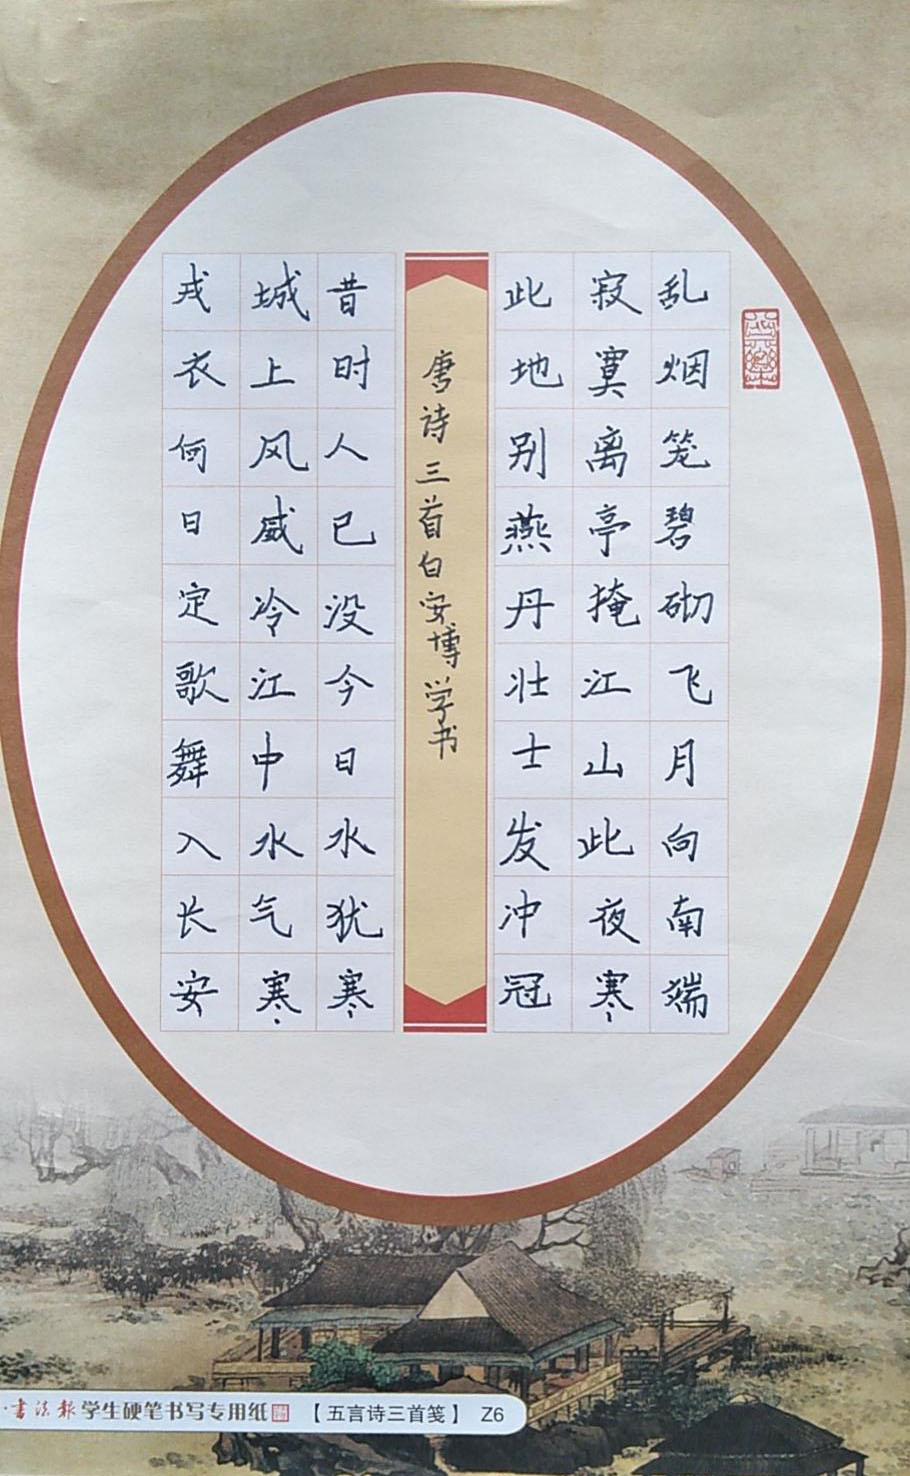 乱烟笼碧砌飞月向南端
寂寞离亭掩江山此夜寒
此地别燕丹壮士发冲冠
唐诗三首白安博学书
昔时人已没今日水犹寒
城上风威冷江中水气寒
戎衣何日定歌舞入长安
书法报学生硬笔书写专用纸
【五言诗三首笺】 Z6